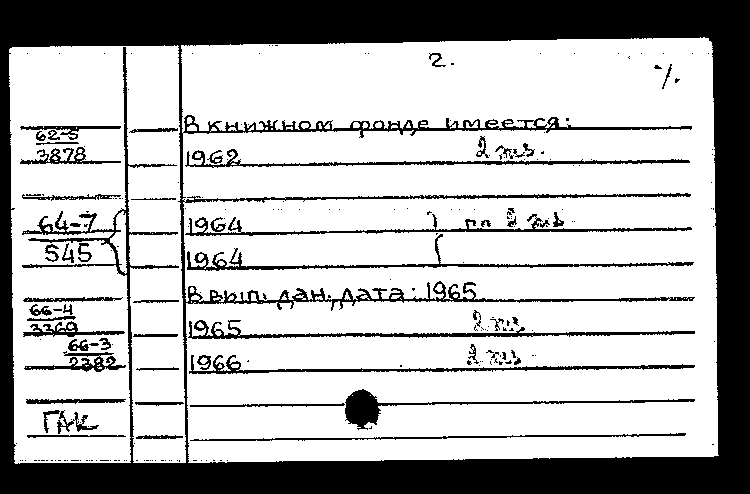 2.
В книжном фонде имеется:
62-5
3878 1962 2 экз.
64-7 1964 по 2 экз
545 1964
В вып. дан. дата: 1965
66-4
3369 1965 2 экз
66-3
2382 1966 2 экз
ГАК